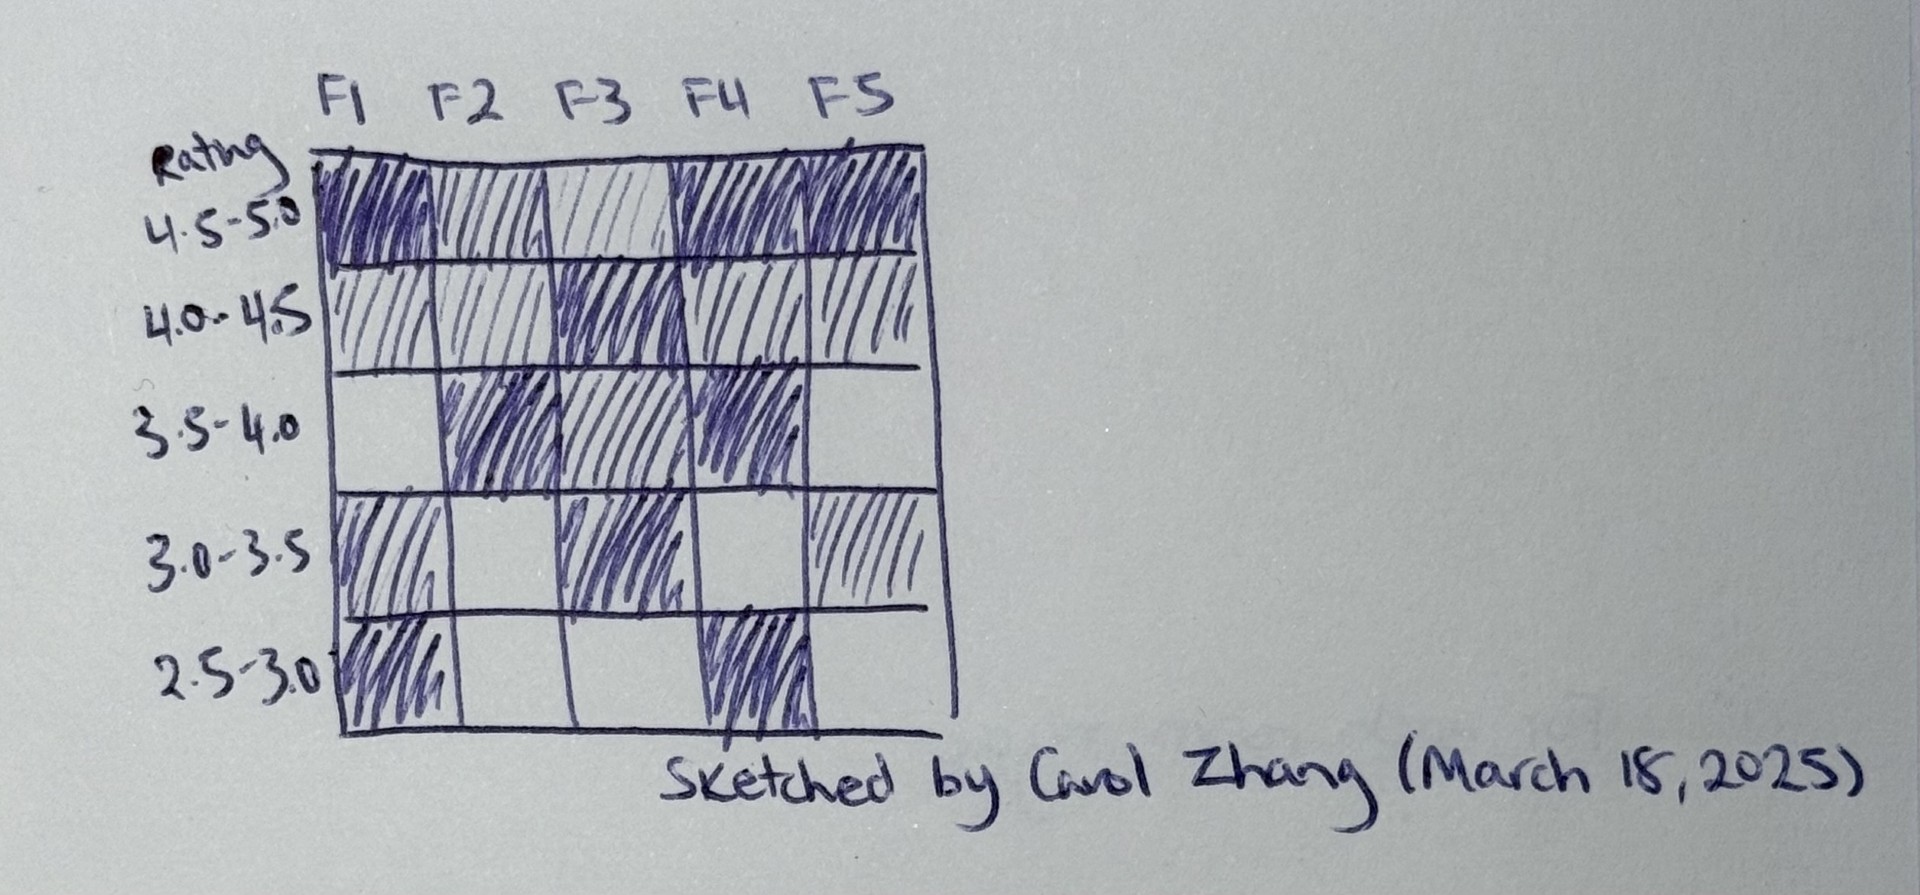 F1 F2 F3 F4 F5
Rating
4.5-5.0
4.0-4.5
3.5-4.0
3.0-3.5
2.5-3.0
Sketched by Carol Zhang (March 18, 2025)